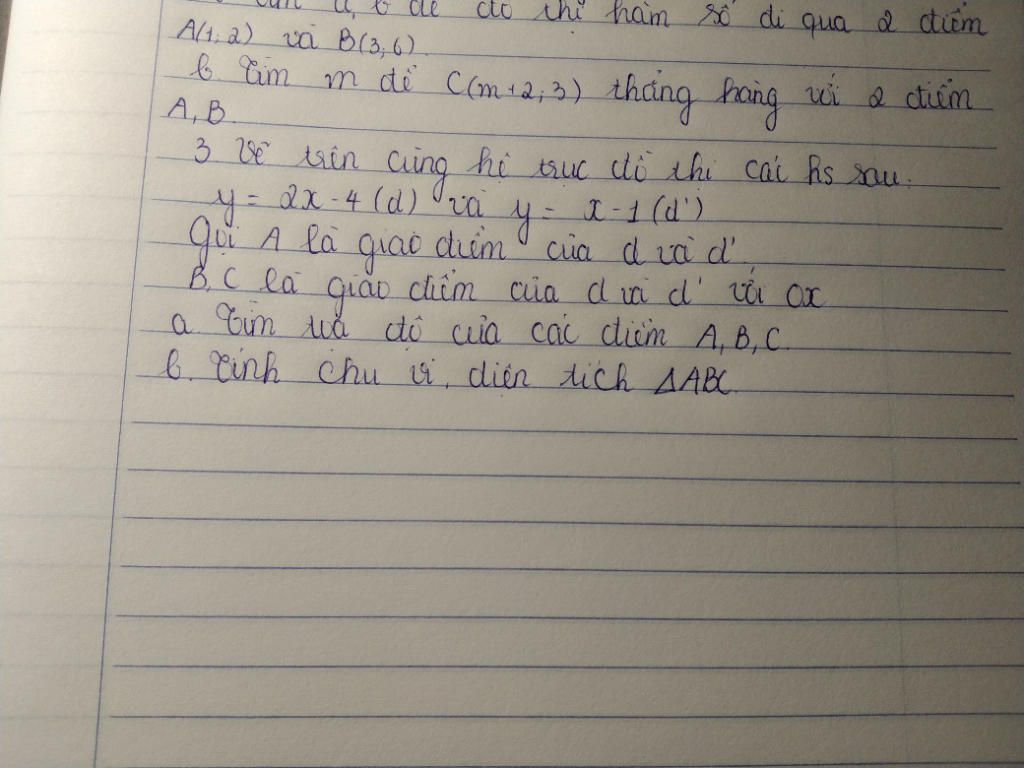 a, b để đồ thị hàm số đi qua 2 điểm
A(1,2) và B(3,6).
b Tìm m để C(m+2,3) thẳng hàng với 2 điểm
A, B.
3 Vẽ trên cùng hệ trục đồ thị các hs sau:
y = 2x-4 (d) và y = x-1 (d')
Gọi A là giao điểm của d và d'.
B, C là giao điểm của d và d' với Ox
a. Tìm toạ độ của các điểm A, B, C.
b. Tính chu vi, diện tích ΔABC.